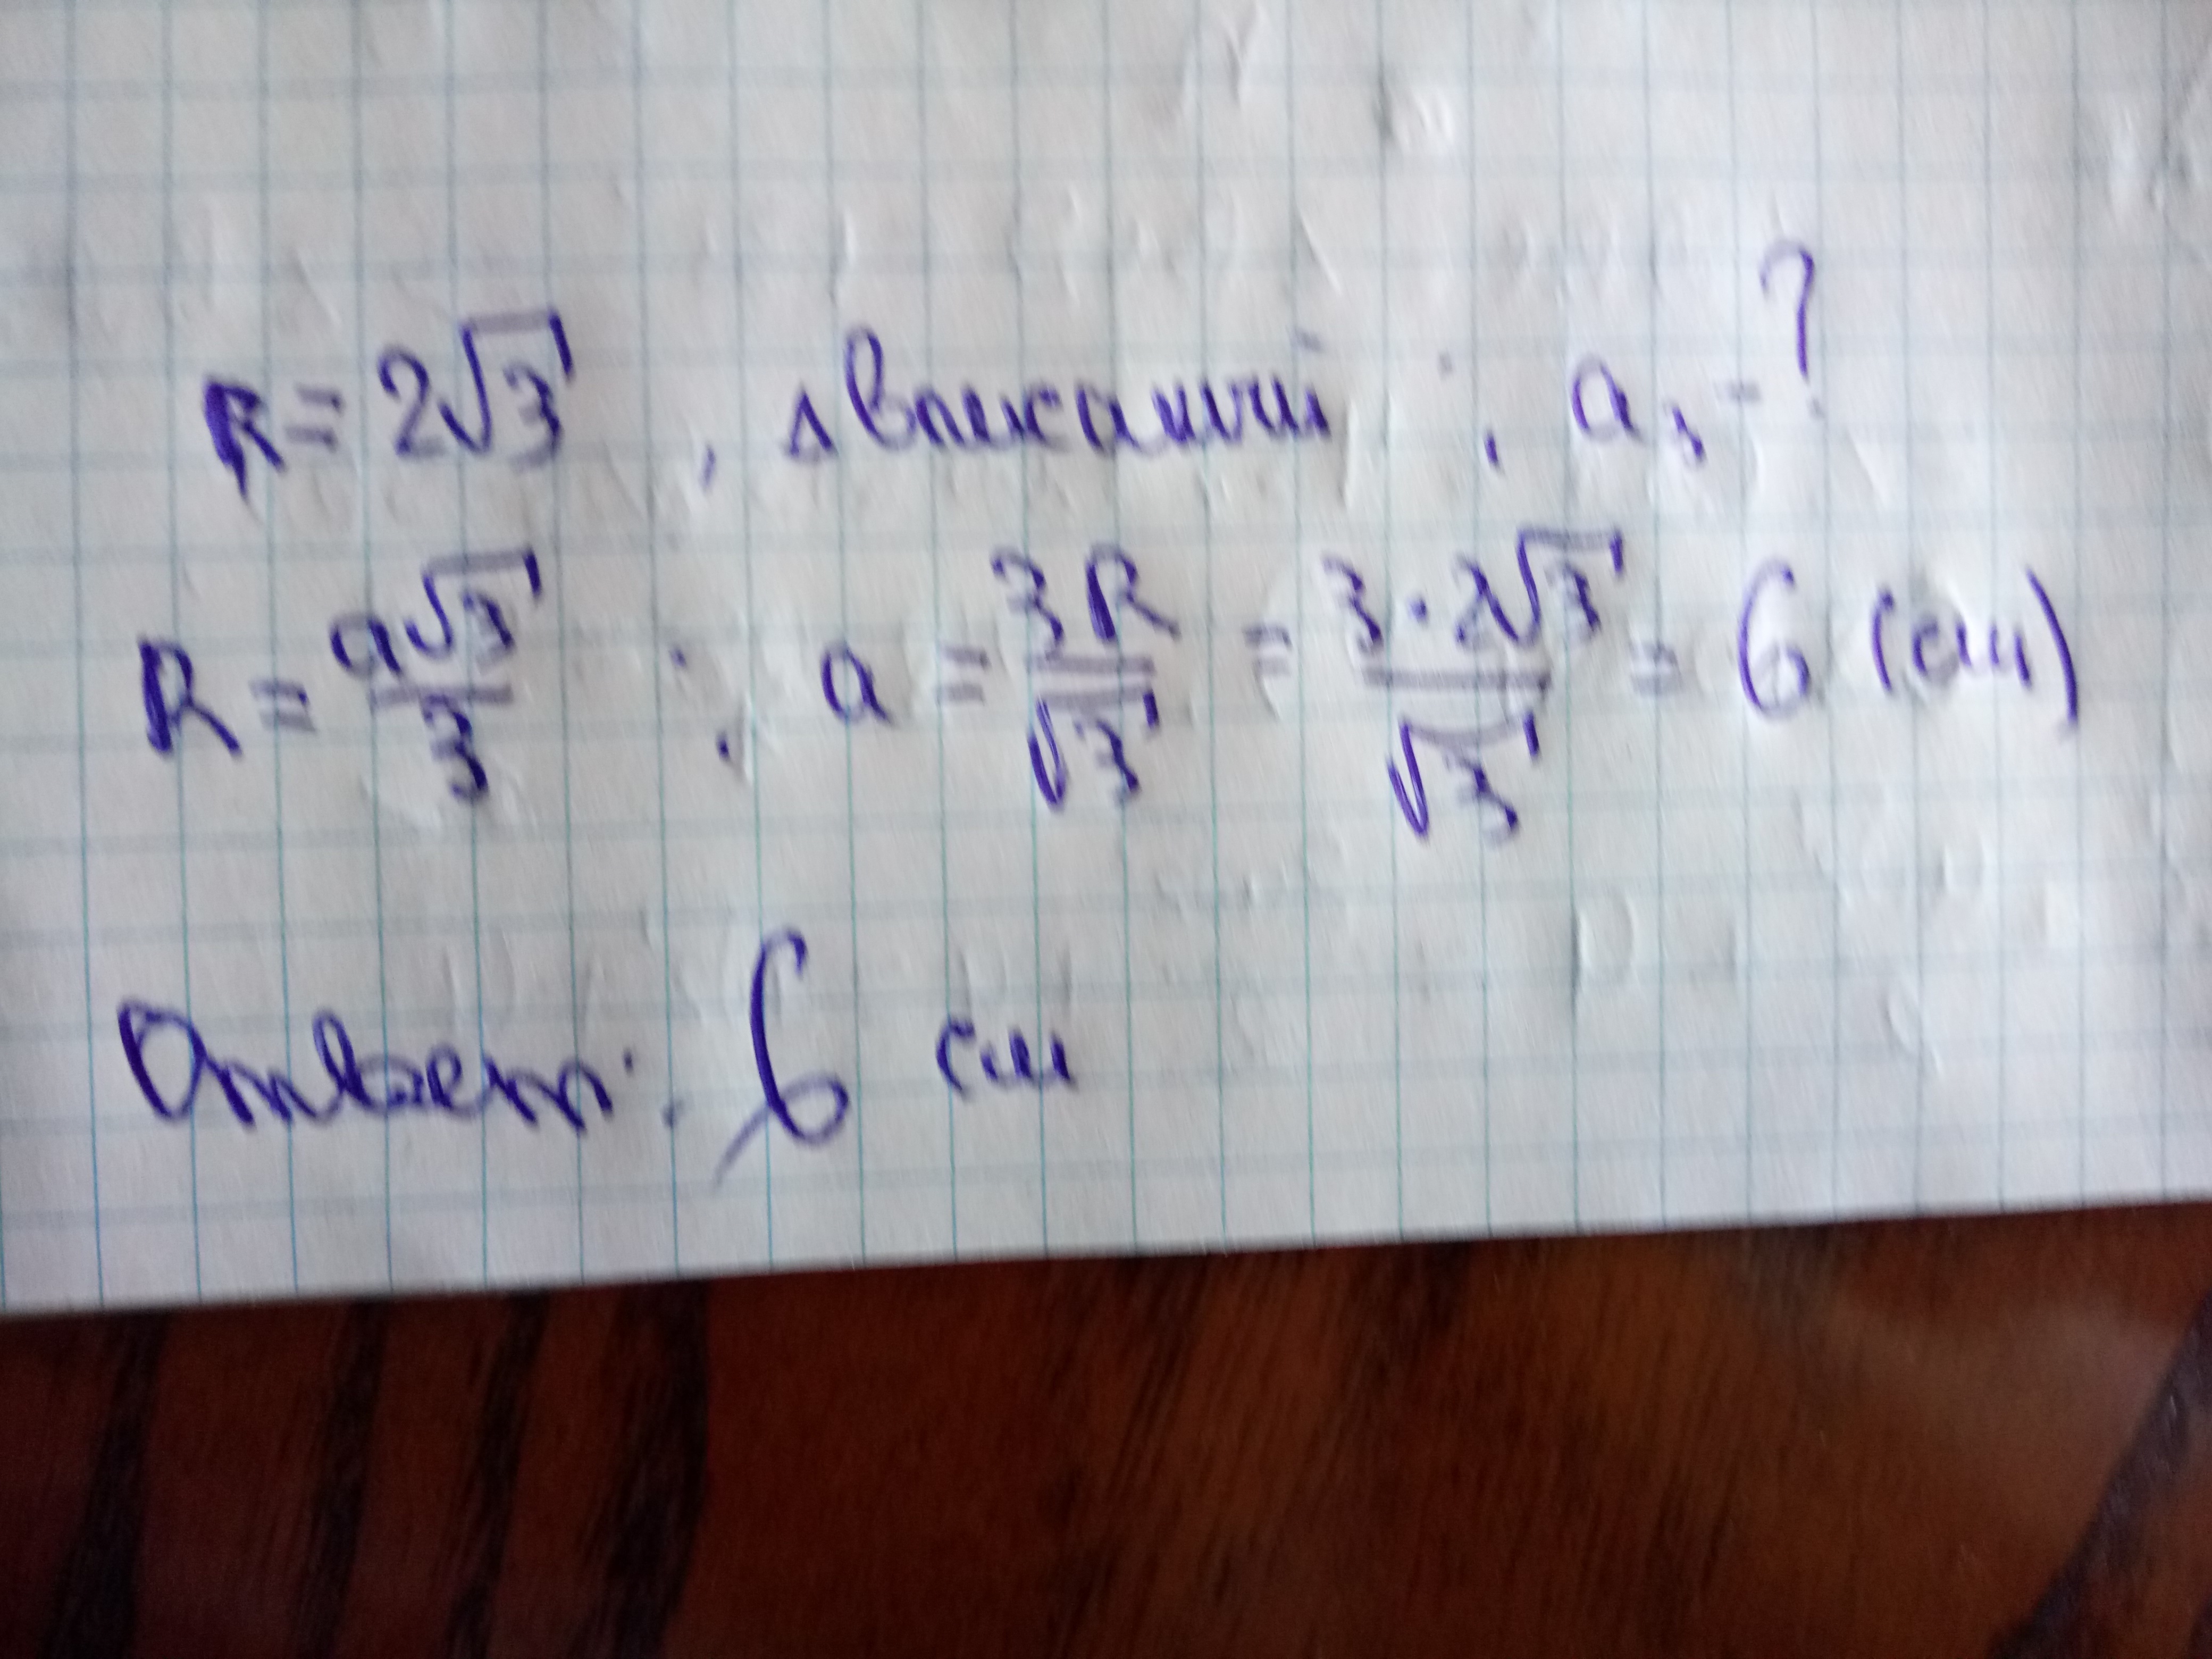 R = 2√3, Δ вписаний; a₃ - ?
R = a√3/3; a = 3R/√3 = 3·2√3/√3 = 6 (см)
Ответ: 6 см